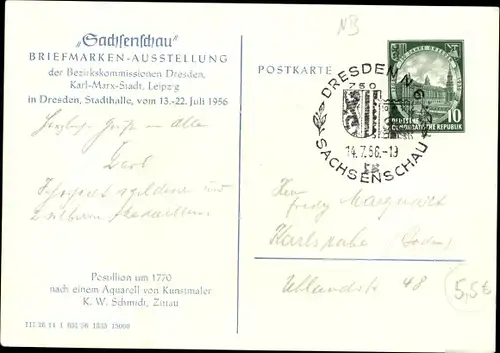 „Sachsenschau"
BRIEFMARKEN-AUSSTELLUNG
der Bezirkskommissionen Dresden,
Karl-Marx-Stadt, Leipzig
in Dresden, Stadthalle, vom 13.-22. Juli 1956
Herzliche Grüße an Alle
und
Postillion um 1770
nach einem Aquarell von Kunstmaler
K. W. Schmidt, Zittau
III 28 14 1 651 56 1335 15000
NB
POSTKARTE
750 JAHRE DRESDEN
10
DEUTSCHE
DEMOKRATISCHE REPUBLIK
DRESDEN N
750
14.7.56.-19
SACHSENSCHAU
Herrn
Fredy Marquart
Karlsruhe (Baden)
Uhlandstr 48
5,5€